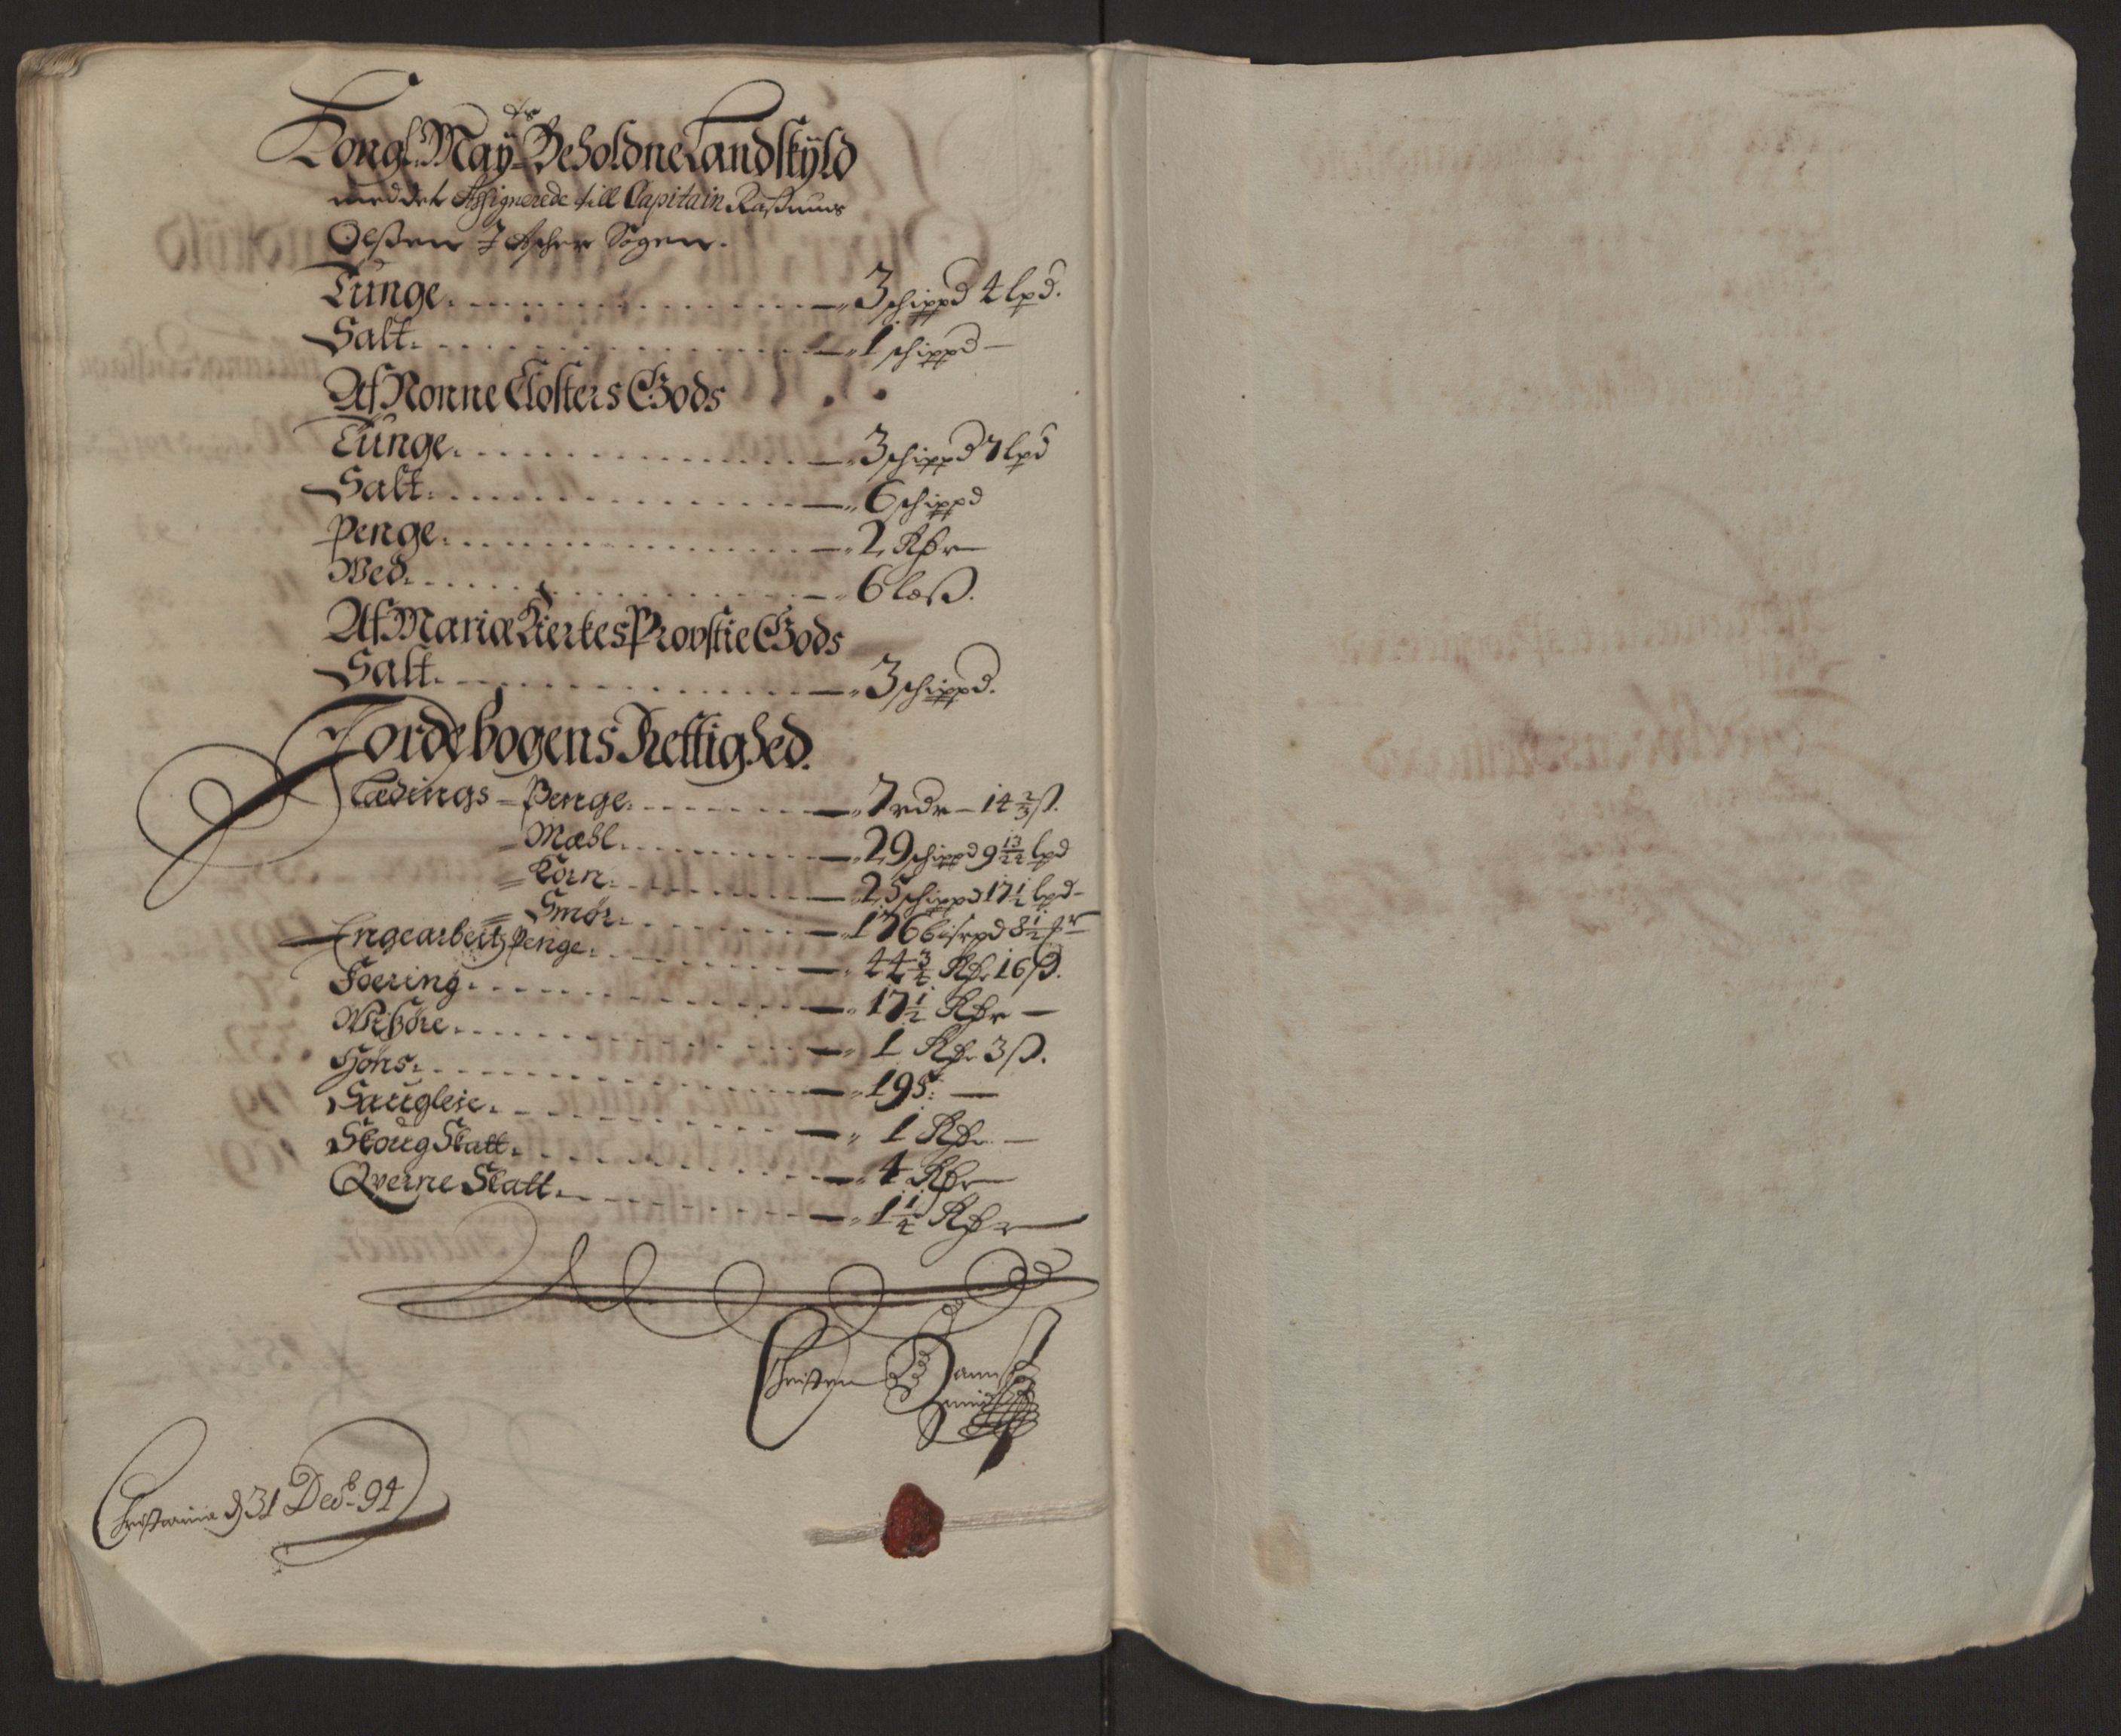 Kongl: May:ts Beholdne Landskyld
med det Assignerede till Capitain Raßmus
Olßen J Acher Sogen.
Tunge. 3 schippd 4 lpd.
Salt. 1 schippd
Af Nonne Closters Gods
Tunge. 3 schippd 7 lpd
Salt. 6 schippd
Penge. 2 Rdr
Wed. 6 læß.
Af Mariæ Kierkes Provstie Gods
Salt. 3 schippd.
Jordebogens Rettighed.
Lædings = Penge. 7 rdr 14 2/3 ß.
= Mæhl. 29 schippd 9 13/24 lpd
= Korn. 25 schippd 17 1/2 lpd
= Smør. 176 bisrpd 8 1/2
Engearbeitz Penge. 44 3/4 Rdr 16 ß.
Foering. 17 1/2 Rdr
Wißöre. 1 Rdr 3 ß.
Höns. 195:
Saugleie. 1 Rdr
Skoug Skatt. 4 Rdr
Qverne Skatt. 1 1/4 Rdr
Christen
Christiania d 31 Decb: 94